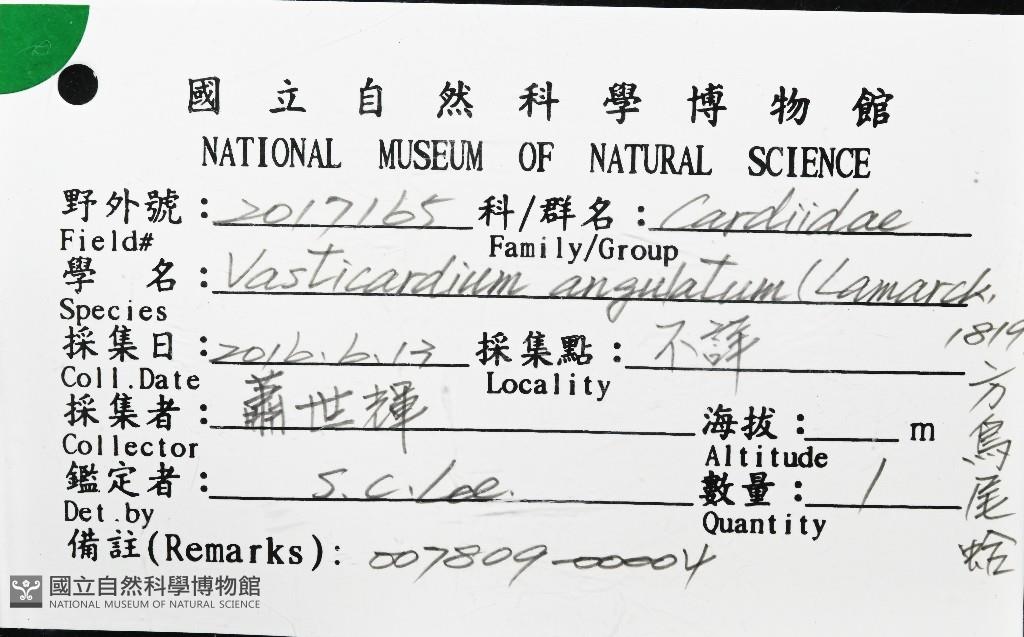 國立自然科學博物館
NATIONAL MUSEUM OF NATURAL SCIENCE
野外號：2017165 科/群名：Cardiidae
Field# Family/Group
學名：Vasticardium angulatum (Lamarck,
Species
1819
採集日：2016.6.13 採集點：不詳
Coll.Date Locality
採集者：蕭世輝 海拔： m
Collector Altitude
鑑定者：S.C.Lee. 數量：1
Det.by Quantity
備註(Remarks)：007809-00004
方鳥尾蛤
國立自然科學博物館
NATIONAL MUSEUM OF NATURAL SCIENCE